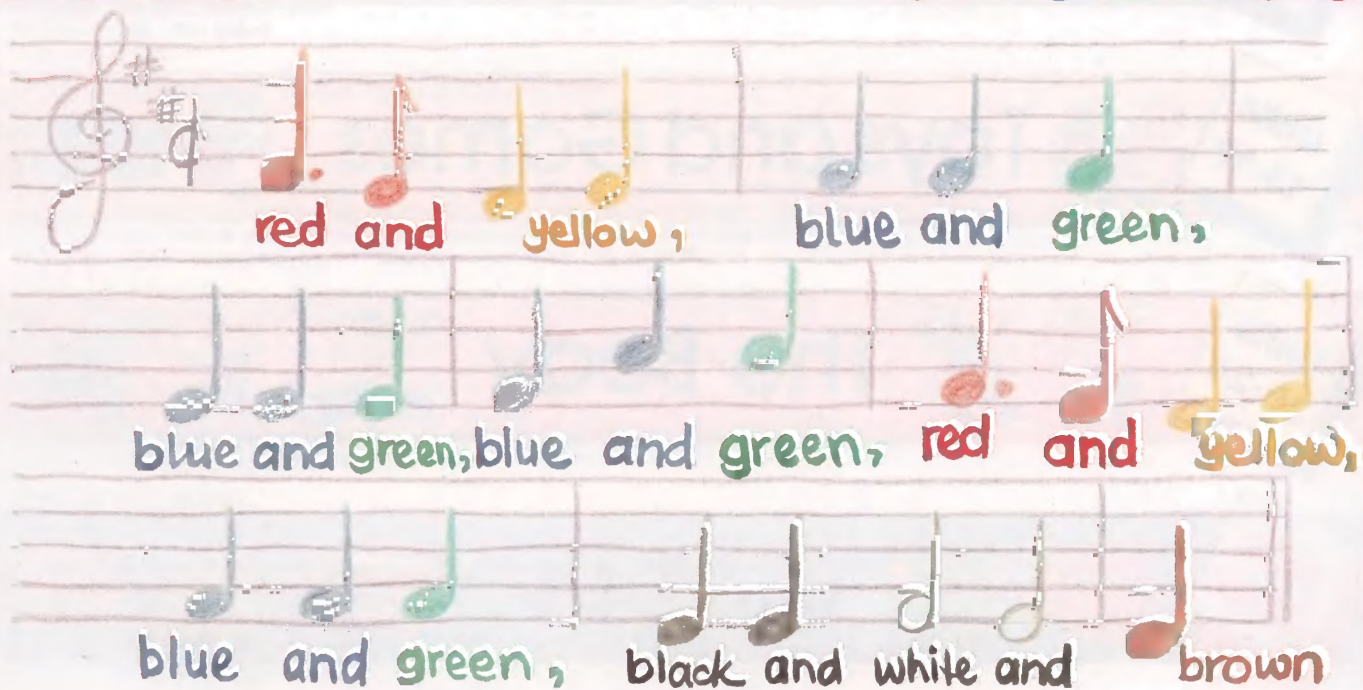 red and yellow, blue and green,
blue and green, blue and green, red and yellow,
blue and green, black and white and brown